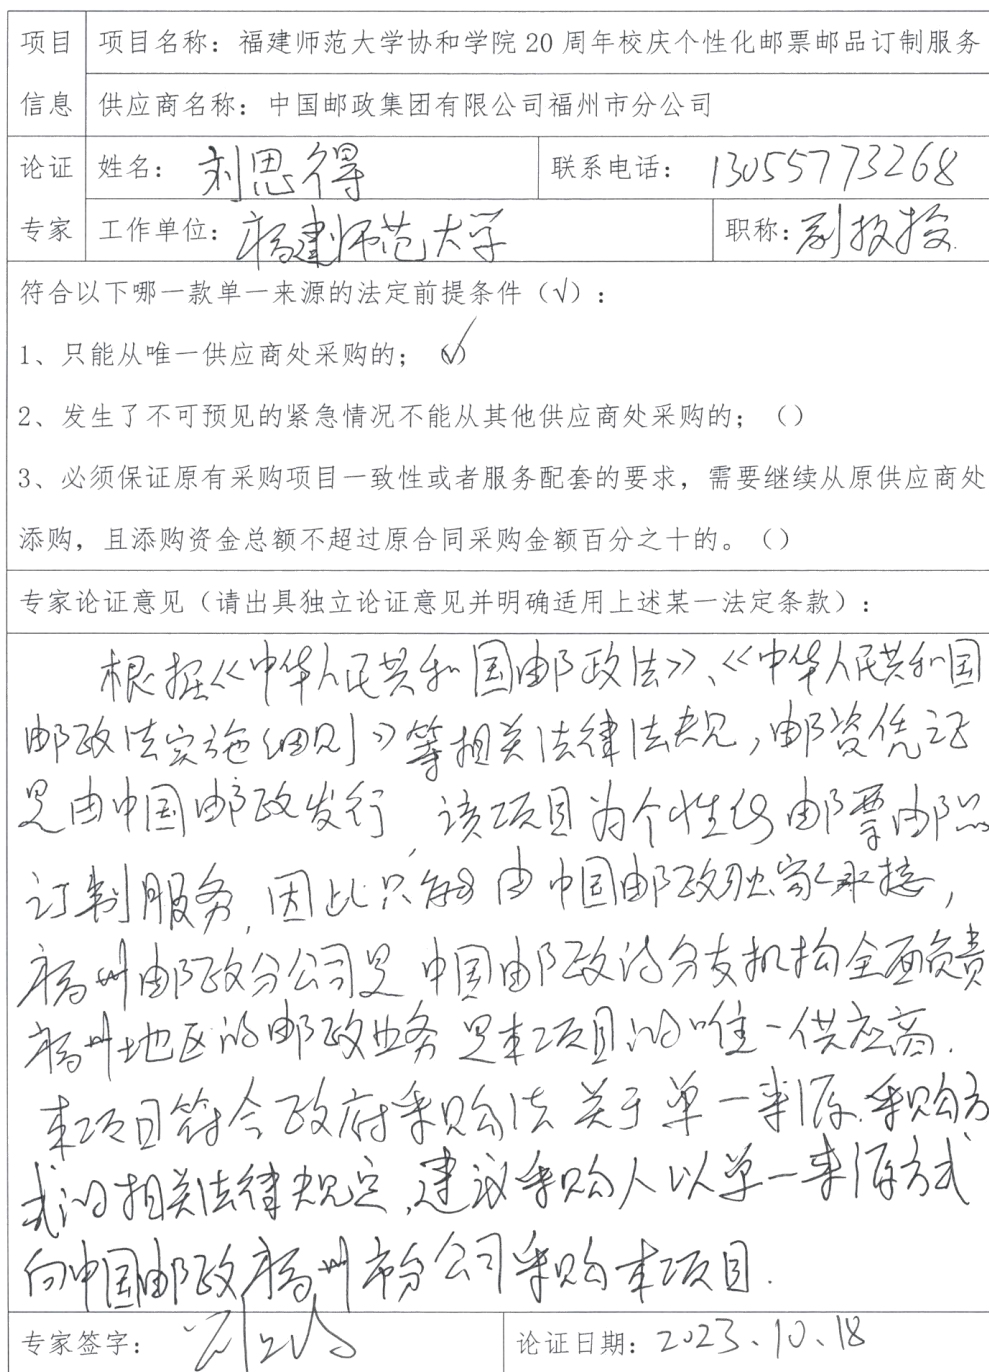 项目 项目名称：福建师范大学协和学院 20 周年校庆个性化邮票邮品订制服务
信息 供应商名称：中国邮政集团有限公司福州市分公司
论证 姓名： 刘思得 联系电话： 13055773268
专家 工作单位： 福建师范大学 职称：副教授
符合以下哪一款单一来源的法定前提条件（√）：
1、只能从唯一供应商处采购的；（√）
2、发生了不可预见的紧急情况不能从其他供应商处采购的；（）
3、必须保证原有采购项目一致性或者服务配套的要求，需要继续从原供应商处
添购，且添购资金总额不超过原合同采购金额百分之十的。（）
专家论证意见（请出具独立论证意见并明确适用上述某一法定条款）：
根据《中华人民共和国邮政法》、《中华人民共和国
邮政法实施细则》等相关法律法规，邮资凭证
是由中国邮政发行，该项目为个性化邮票邮品
订制服务，因此只能由中国邮政独家承接，
福州邮政分公司是中国邮政的分支机构全面负责
福州地区的邮政业务是本项目的唯一供应商．
本项目符合政府采购法关于单一来源采购方
式的相关法律规定，建议采购人以单一来源方式
向中国邮政福州市分公司采购本项目．
专家签字： 论证日期：2023、10、18